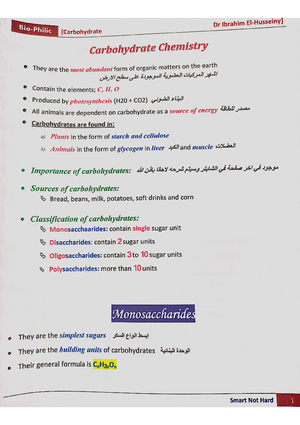 Bio-Philic [Carbohydrate Dr Ibrahim El-Husseiny]
Carbohydrate Chemistry
• They are the most abundant form of organic matters on the earth
اشهر المركبات العضوية الموجودة على سطح الارض
• Contain the elements; C, H, O
• Produced by photosynthesis (H2O + CO2) البناء الضوئي
• All animals are dependent on carbohydrate as a source of energy مصدر للطاقة
• Carbohydrates are found in:
a) Plants in the form of starch and cellulose
b) Animals in the form of glycogen in liver الكبد and muscle العضلات
• Importance of carbohydrates: موجود في اخر صفحة في الشابتر وسيتم شرحه لاحقا باذن الله
• Sources of carbohydrates:
Bread, beans, milk, potatoes, soft drinks and corn
• Classification of carbohydrates:
Monosaccharides: contain single sugar unit
Disaccharides: contain 2 sugar units
Oligosaccharides: contain 3 to 10 sugar units
Polysaccharides: more than 10 units
Monosaccharides
• They are the simplest sugars ابسط انواع السكر
• They are the building units of carbohydrates الوحدة البنائية
• Their general formula is CnH2nOn
Smart Not Hard 1